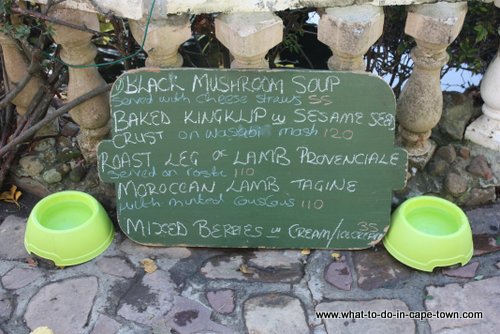 BLACK MUSHROOM SOUP
Served with cheese straws 55
BAKED KINGKLIP w SESAME SEED
CRUST on wasabi mash 120
ROAST LEG OF LAMB PROVENCIALE
Served on rosti 110
MOROCCAN LAMB TAGINE
with minted couscous 110
MIXED BERRIES w CREAM/ICECREAM 35
www.what-to-do-in-cape-town.com